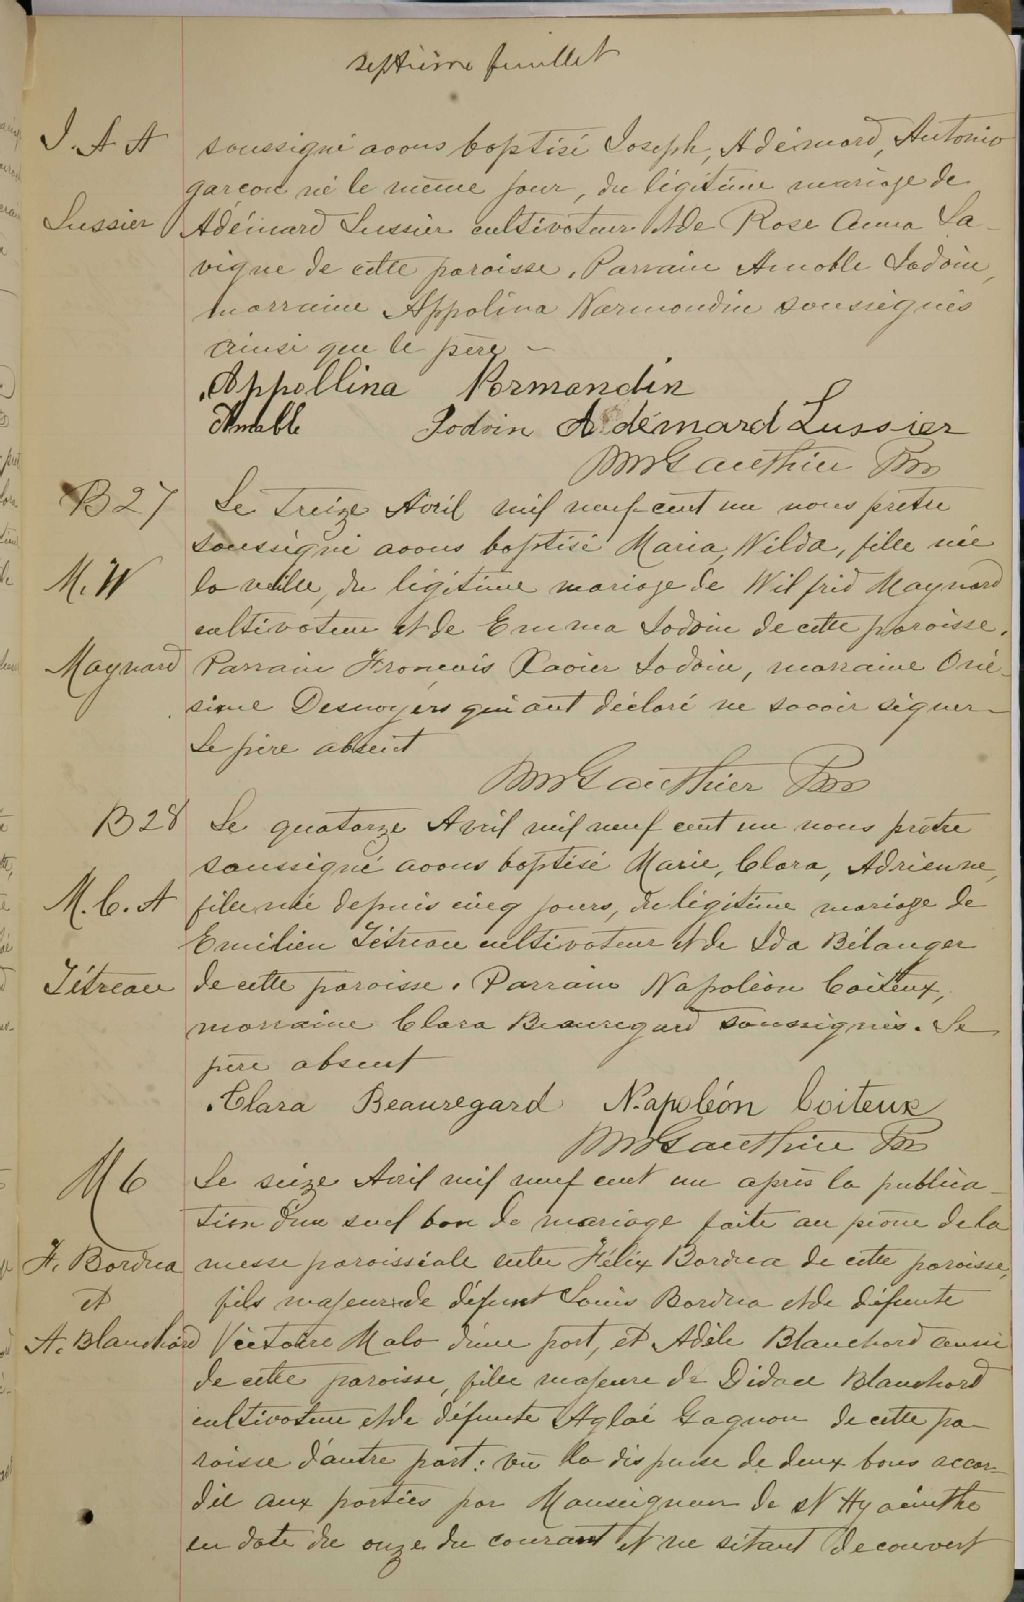 septième feuillet
J. A A
soussigné avons baptisé Joseph, Adémard, Antonio
garçon né le même jour, du légitime mariage de
Lussier
Adémard Lussier cultivateur et de Rose Anna La-
vigne de cette paroisse. Parrain Amable Jodoin,
marraine Appolina Normandin soussignés
ainsi que le père -
Appollina Normandin
Amable Jodoin Adémard Lussier
Gauthier Ptre
B 27
Le treize Avril mil neuf-cent un nous prêtre
soussigné avons baptisé Maria, Wilda, fille née
M. W
la veille, du légitime mariage de Wilfrid Maynard
cultivateur et de Emma Jodoin de cette paroisse.
Maynard
Parrain François Xavier Jodoin, marraine Oné-
sime Desnoyers qui ont déclaré ne savoir signer -
Le père absent
Gauthier Ptre
B 28
Le quatorze Avril mil neuf cent un nous prêtre
soussigné avons baptisé Marie, Clara, Adrienne,
M. C. A
fille née depuis cinq jours, du légitime mariage de
Emilien Tétreau cultivateur et de Ida Bélanger
Tétreau
de cette paroisse. Parrain Napoléon Coiteux,
marraine Clara Beauregard soussignés. Le
père absent
Clara Beauregard Napoléon Coiteux
Gauthier Ptre
M 6
Le seize Avril mil neuf cent un après la publica-
tion d'un seul ban de mariage faite au prône de la
F. Bordua
messe paroissiale entre Félix Bordua de cette paroisse,
et
fils majeur de défunt Louis Bordua et de défunte
A. Blanchard
Victoire Malo d'une part, et Adèle Blanchard aussi
de cette paroisse, fille majeure de Didace Blanchard
cultivateur et de défunte Aglaé Gagnon de cette pa-
roisse d'autre part: vu la dispense de deux bans accor-
dée aux parties par Monseigneur de St Hyacinthe
en date du onze du courant et ne s'étant découvert